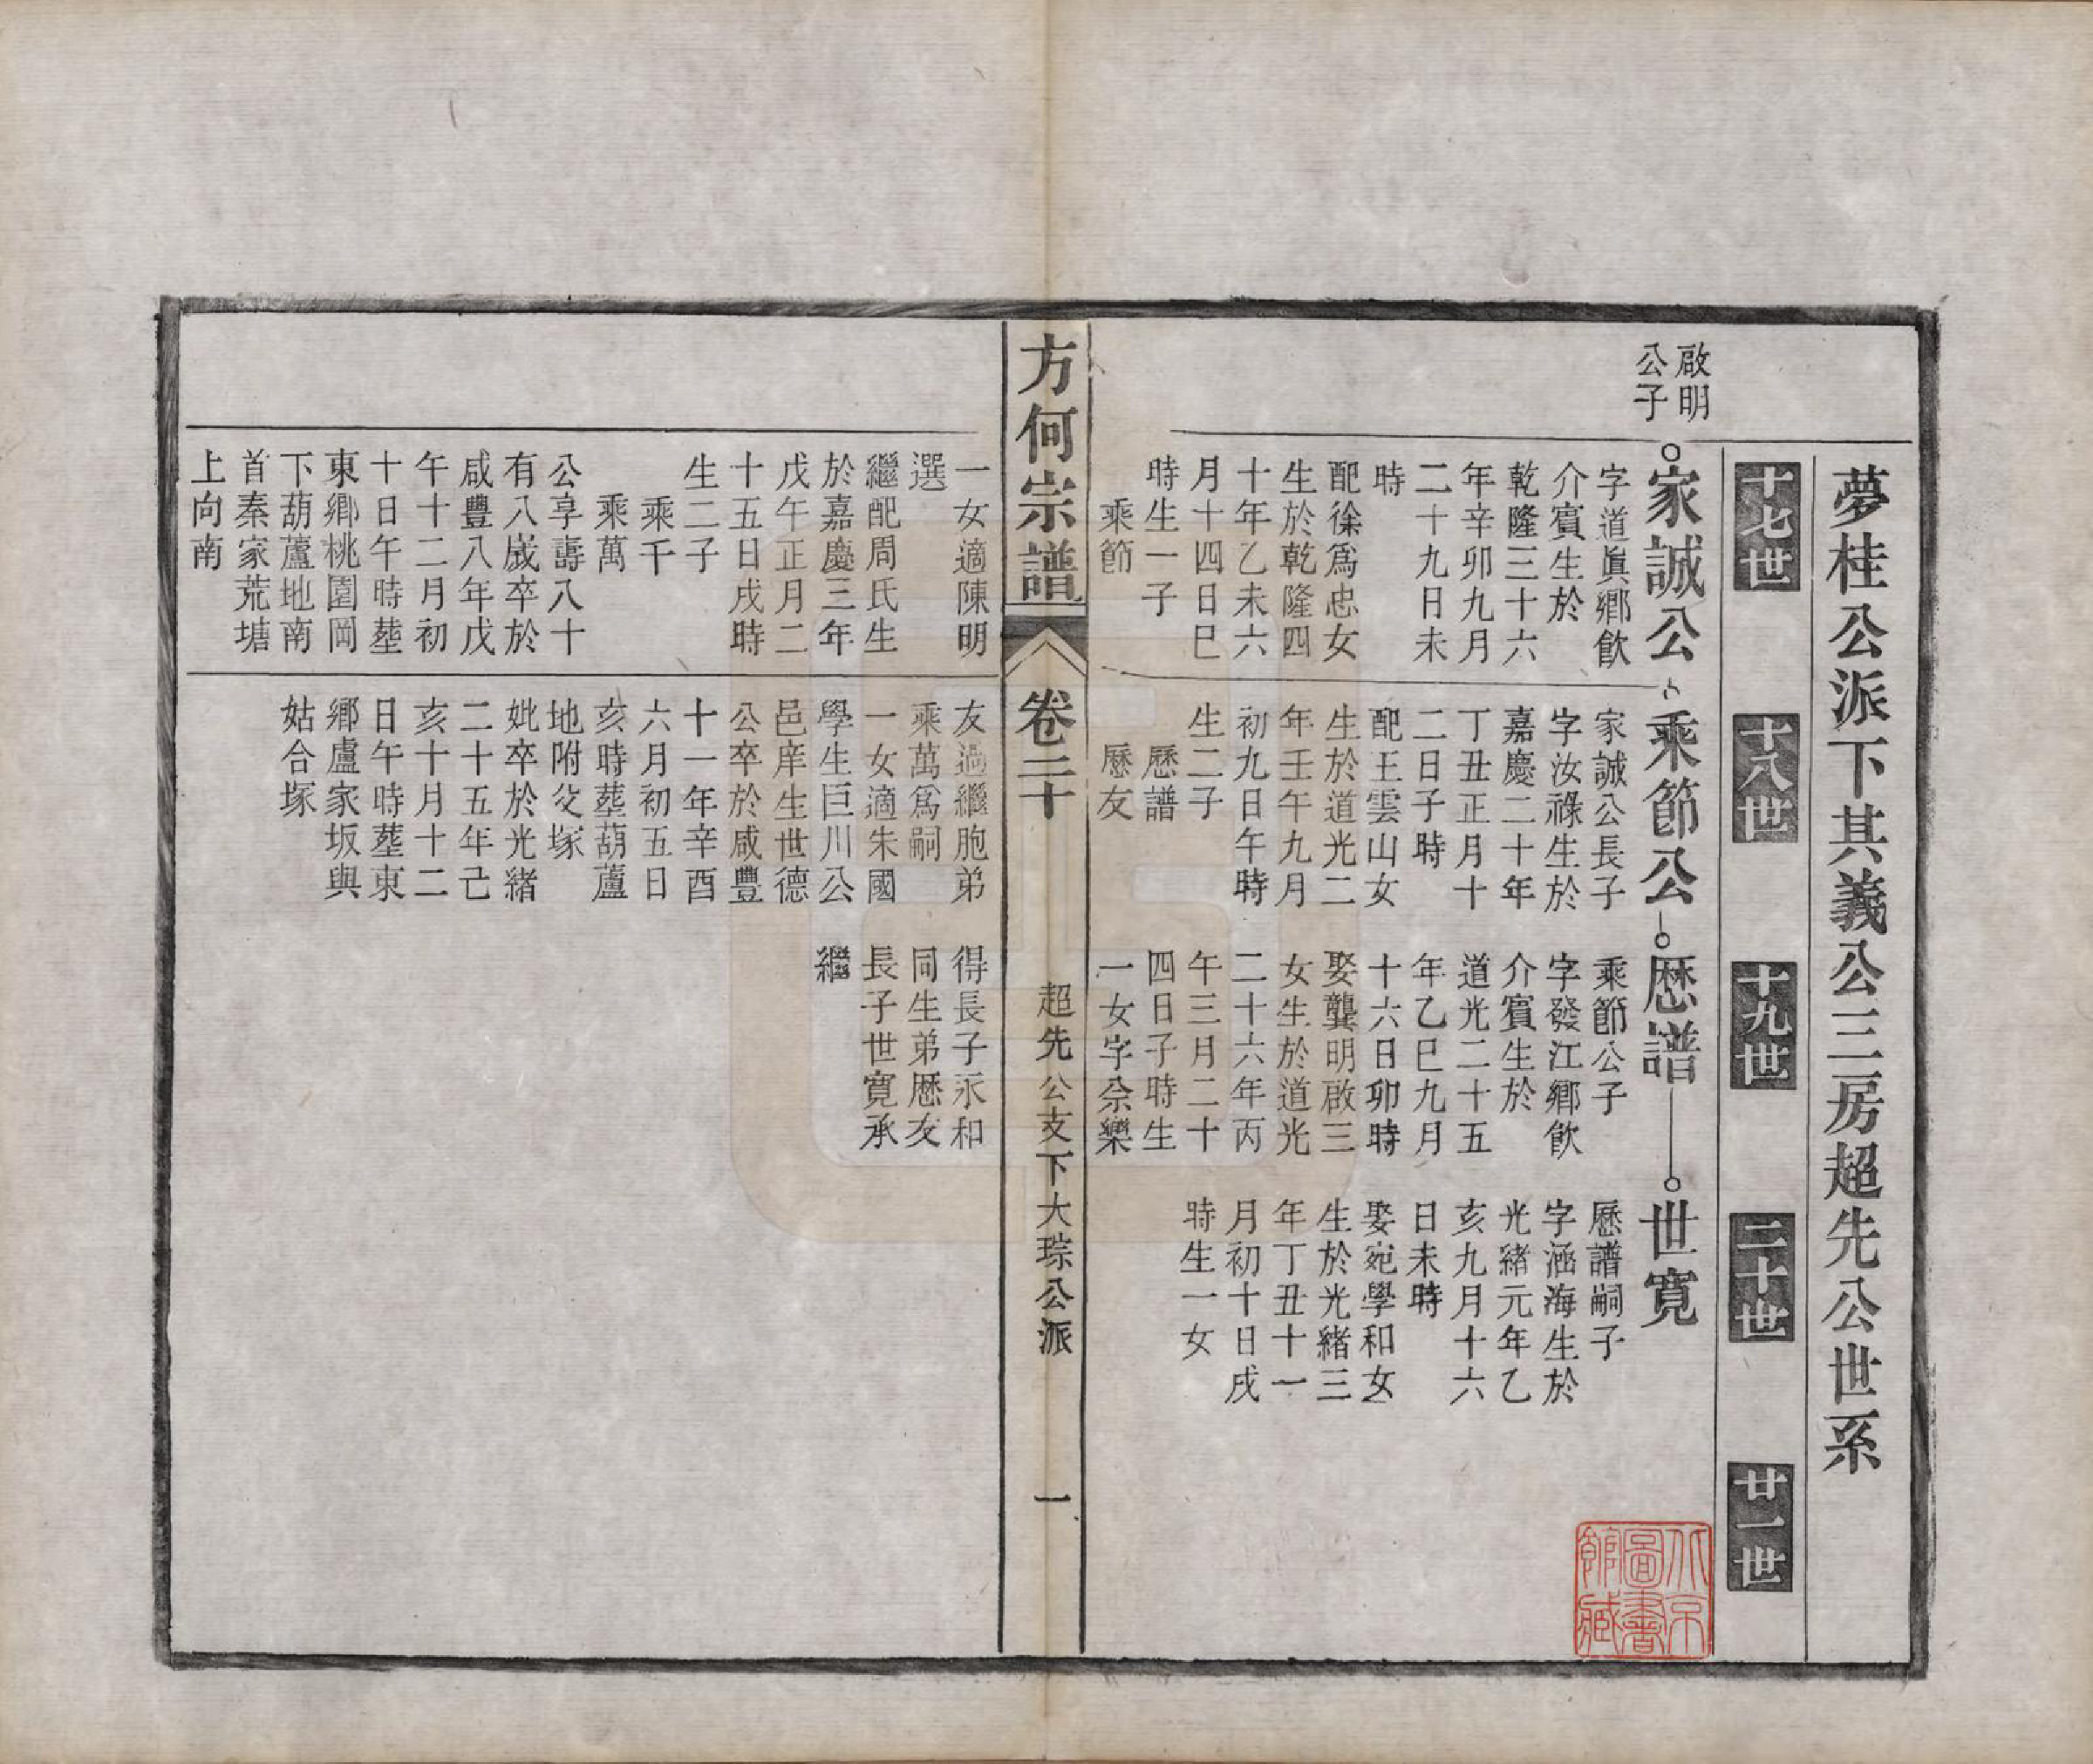 夢桂公派下其義公三房超先公世系
十七世
十八世
十九世
二十世
廿一世
啟明
公子
家誠公
字道眞鄉飲
介賓生於
乾隆三十六
年辛卯九月
二十九日未
時
配徐爲忠女
生於乾隆四
十年乙未六
月十四日巳
時生一子
乘節
乘節公
家誠公長子
字汝祿生於
嘉慶二十年
丁丑正月十
二日子時
配王雲山女
生於道光二
年壬午九月
初九日午時
生二子
歷譜
歷友
歷譜
乘節公子
字發江鄉飲
介賓生於
道光二十五
年乙巳九月
十六日卯時
娶龔明啟三
女生於道光
二十六年丙
午三月二十
四日子時生
一女字佘樂
世寬
歷譜嗣子
字涵海生於
光緒元年乙
亥九月十六
日未時
娶宛學和女
生於光緒三
年丁丑十一
月初十日戌
時生一女
方何宗譜
卷二十
超先公支下大琮公派
一
一女適陳明
選
繼配周氏生
於嘉慶三年
戊午正月二
十五日戌時
生二子
乘千
乘萬
公享壽八十
有八歲卒於
咸豐八年戊
午十二月初
十日午時塟
東鄉桃園岡
下葫蘆地南
首秦家荒塘
上向南
友過繼胞弟
乘萬爲嗣
一女適朱國
學生巨川公
邑庠生世德
公卒於咸豐
十一年辛酉
六月初五日
亥時塟葫蘆
地附父塚
妣卒於光緒
二十五年己
亥十月十二
日午時塟東
鄉盧家坂與
姑合塚
得長子永和
同生弟歷友
長子世寬承
繼
北京
圖書
館藏